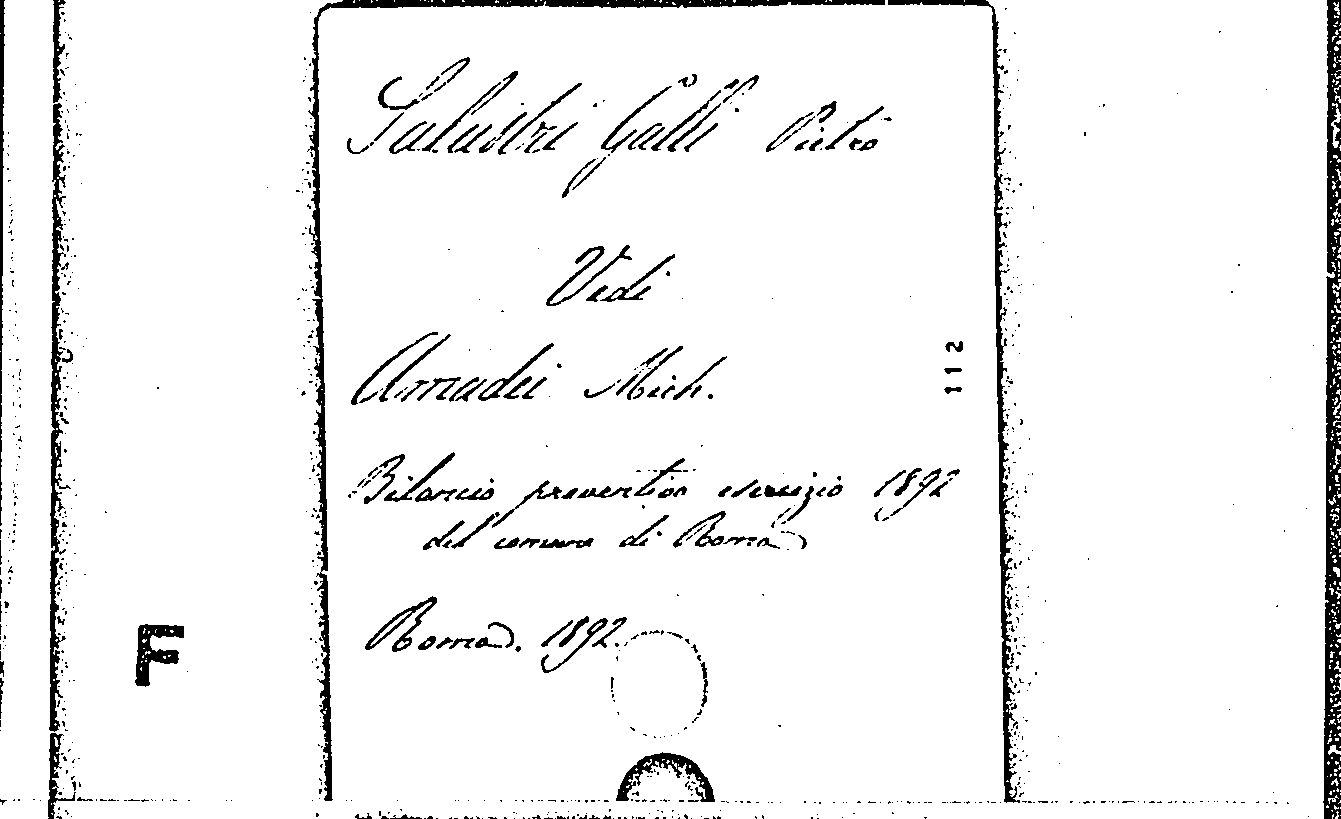 Salustri Galli Pietro
Vedi
Amadei Mich.
112
Bilancio preventivo esercizio 1892
del comune di Roma
Roma. 1892.
F